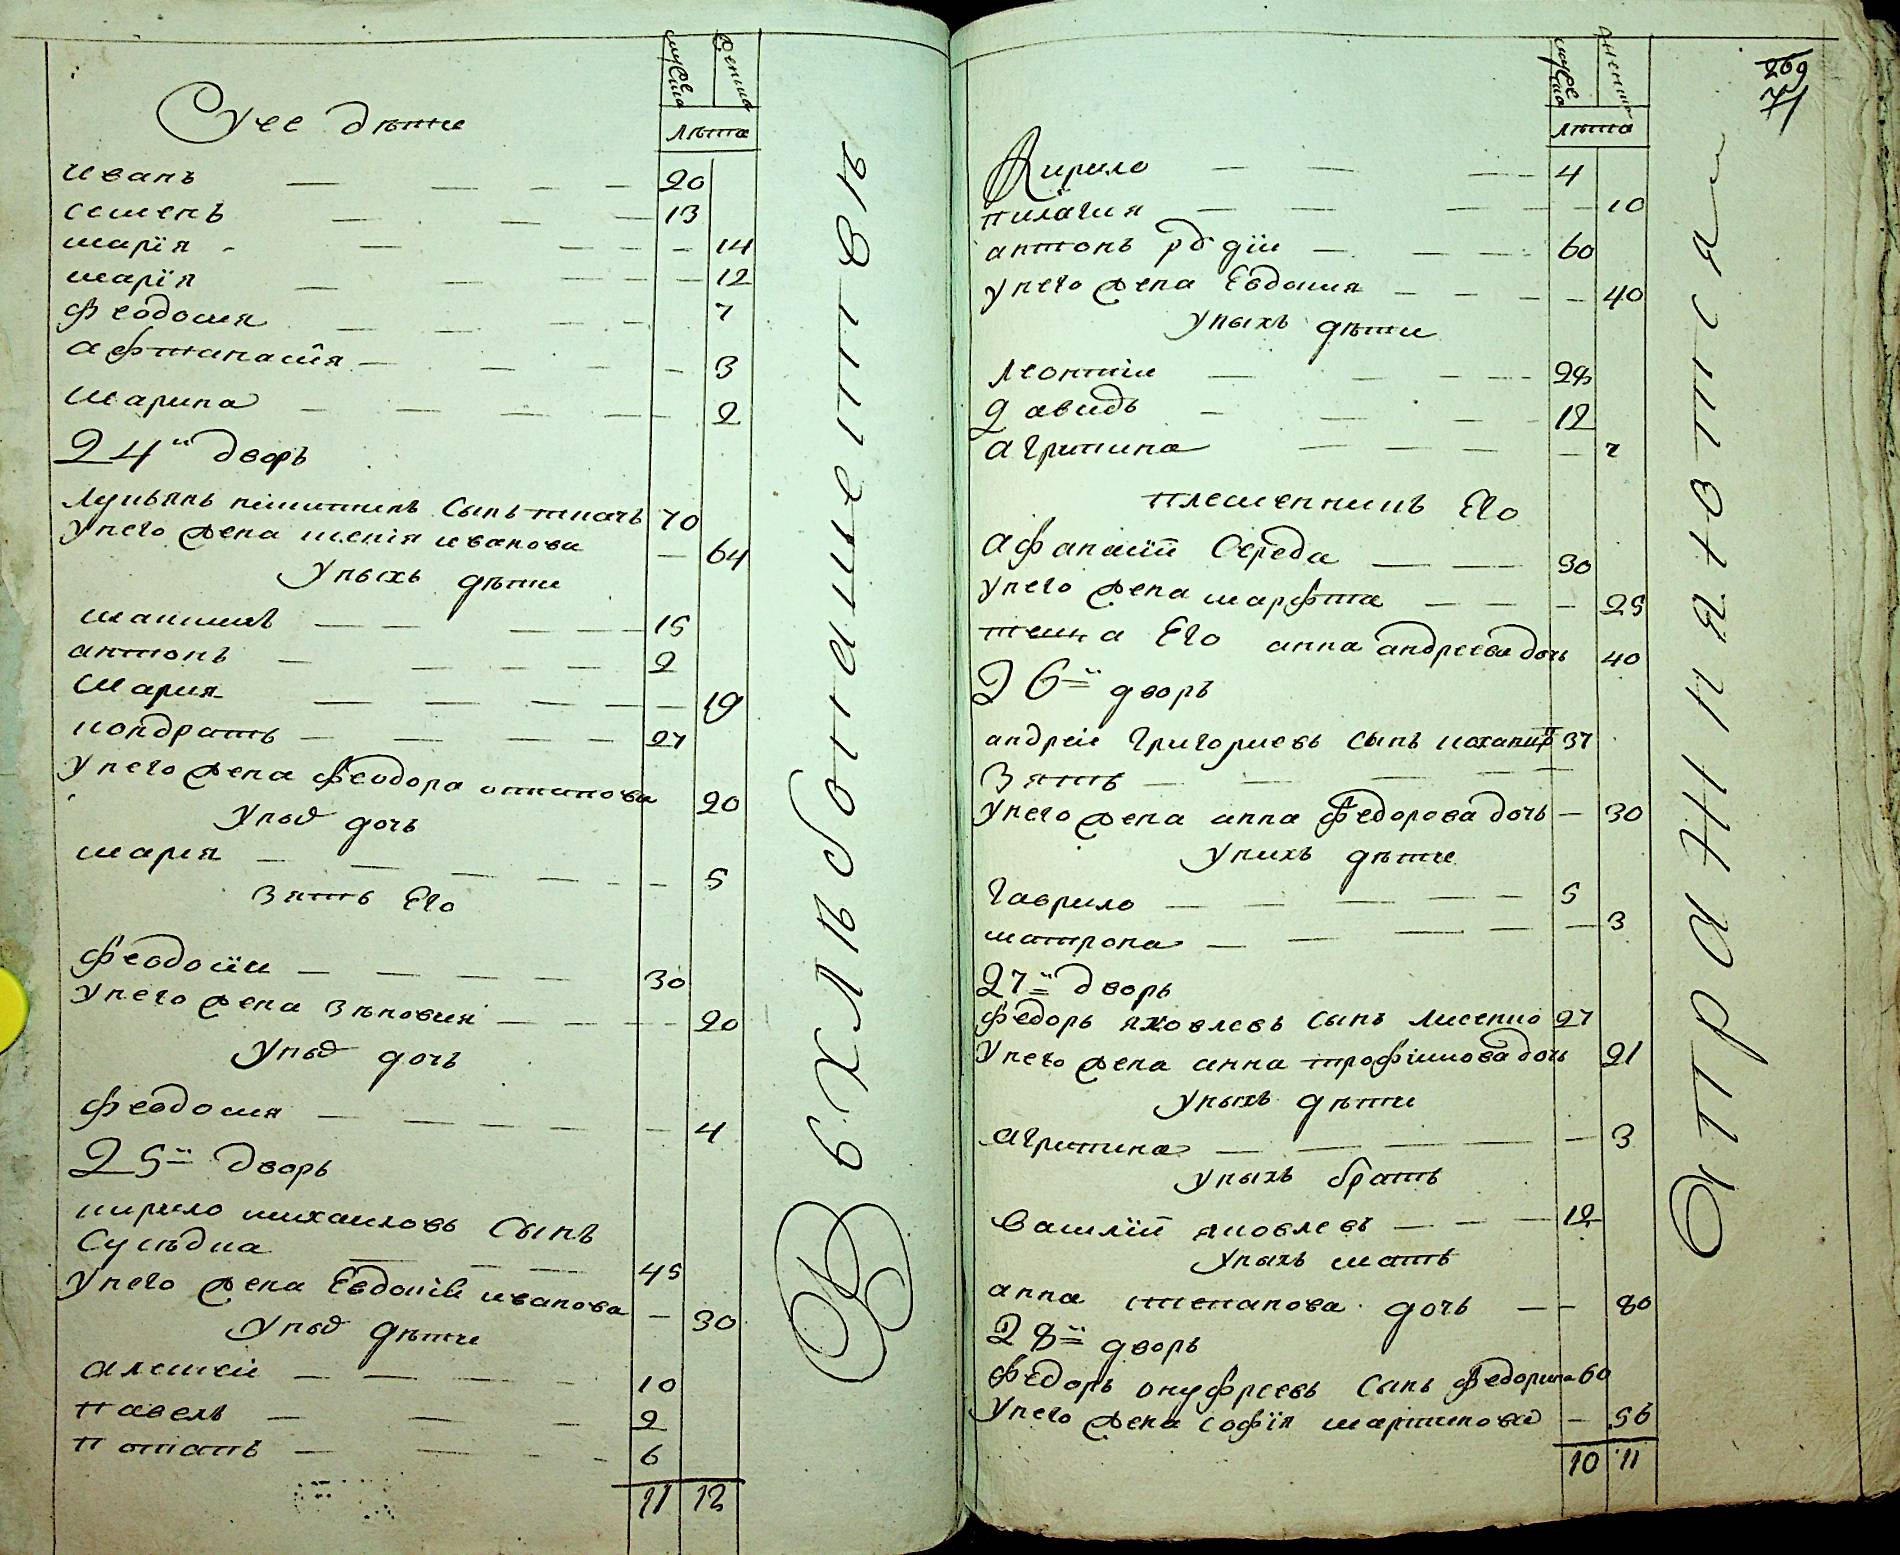 муже
ска
женска
лѣта
Унее дѣти
иванъ — — — — 20
семенъ — — — 13
марїя — — — 14
марїя — — — 12
феодосия — — — 7
афтанасїя — — — 3
марина — — — — 2
24й дворъ
Лукьянъ никитинъ сынъ ткачь 70
унего жена ксенія иванова — 64
Уныхъ дѣти
максимъ — — — 15
антонъ — — — 2
Мария — — — — 19
кондратъ — — — 27
Унего жена феодора осипова 20
Уныхъ дочь
мария — — — — 5
зять Его
Феодосїи — — — — 30
Унего жена зѣновия — — — 20
Уныхъ дочь
феодосия — — — — 4
25й дворъ
кирило михаиловъ сынъ
Суседка — — — 45
Унего жена Евдокїя иванова — 30
Уныхъ дѣти
алексеи — — — — 10
павелъ — — — 2
потапъ — — — 6
11 12
В6 хлѣбопашествѣ
269
71
муже
ска
женска
лѣта
Кирило — — — 4
пилагия — — — — 10
антонъ рб дїи — — — 60
унего жена Евдокия — — — — 40
уныхъ дѣти
леонтїи — — — — 28
давидъ — — — 12
агрипина — — — — 7
племенникъ Его
афанасїй Середа — — — 30
унего жена марфта — — — 25
теща Его анна андреева дочь 40
26й дворъ
андреи Григориевъ сынъ 37
зять — — — —
унего жена анна Федорова дочь — 30
унихъ дѣти
Гаврило — — — — — 5
матрона — — — — — 3
27й дворъ
Федоръ яковлевъ сынъ лисенко 27
Унего жена анна трофїмова дочь 21
уныхъ дѣти
агрипина — — — — — 3
уныхъ братъ
Василїй яковлевъ — — — 12
уныхъ мать
анна степанова дочь — — 80
28й дворъ
Федоръ онуфреевъ сынъ 60
Унего жена софїя мартинова — 56
10 11
упражняются